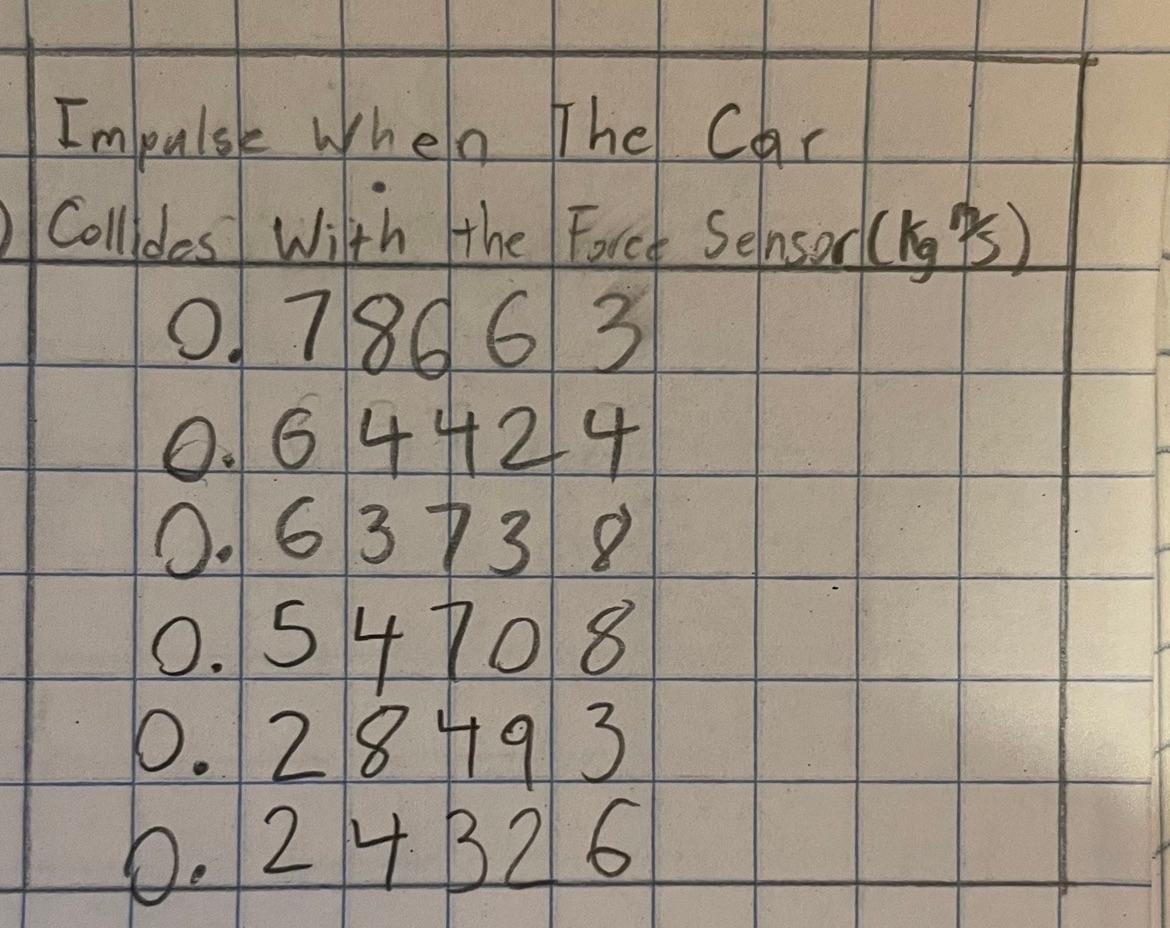 Impulse When The Car
) Collides With the Force Sensor (kg m/s)
0.78663
0.64424
0.63738
0.54708
0.28493
0.24326